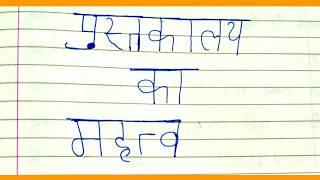 पुस्तकालय
का
महत्व